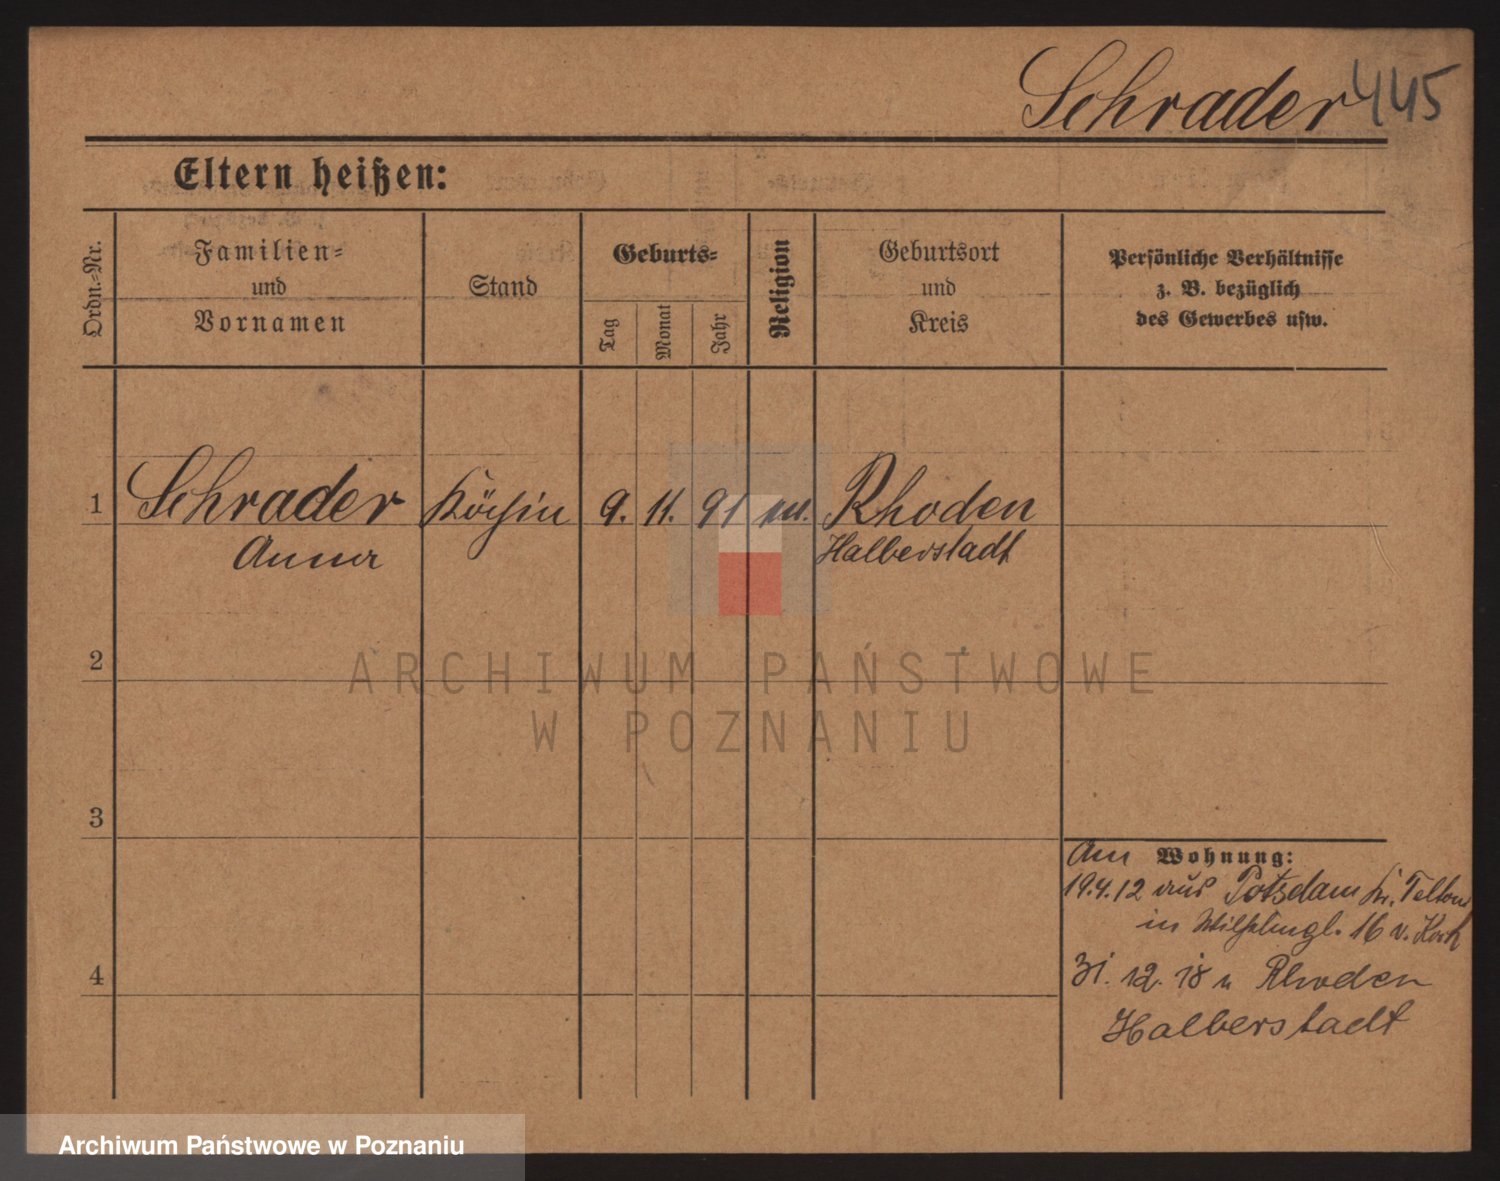 Schrader 445
Eltern heißen:
Ordn.-Nr.
Familien-
und
Vornamen
Stand
Geburts-
Tag
Monat
Jahr
Religion
Geburtsort
und
Kreis
Persönliche Verhältnisse
z. B. bezüglich
des Gewerbes usw.
1 Schrader Köchin 9. 11. 91 Rhoden
Anna Halberstadt
2
3
4
Am Wohnung:
19.4.12 aus Potsdam Kr. Teltow
in 16 v.
31. 12. 18 n Rhoden
Halberstadt
ARCHIWUM PAŃSTWOWE
W POZNANIU
Archiwum Państwowe w Poznaniu